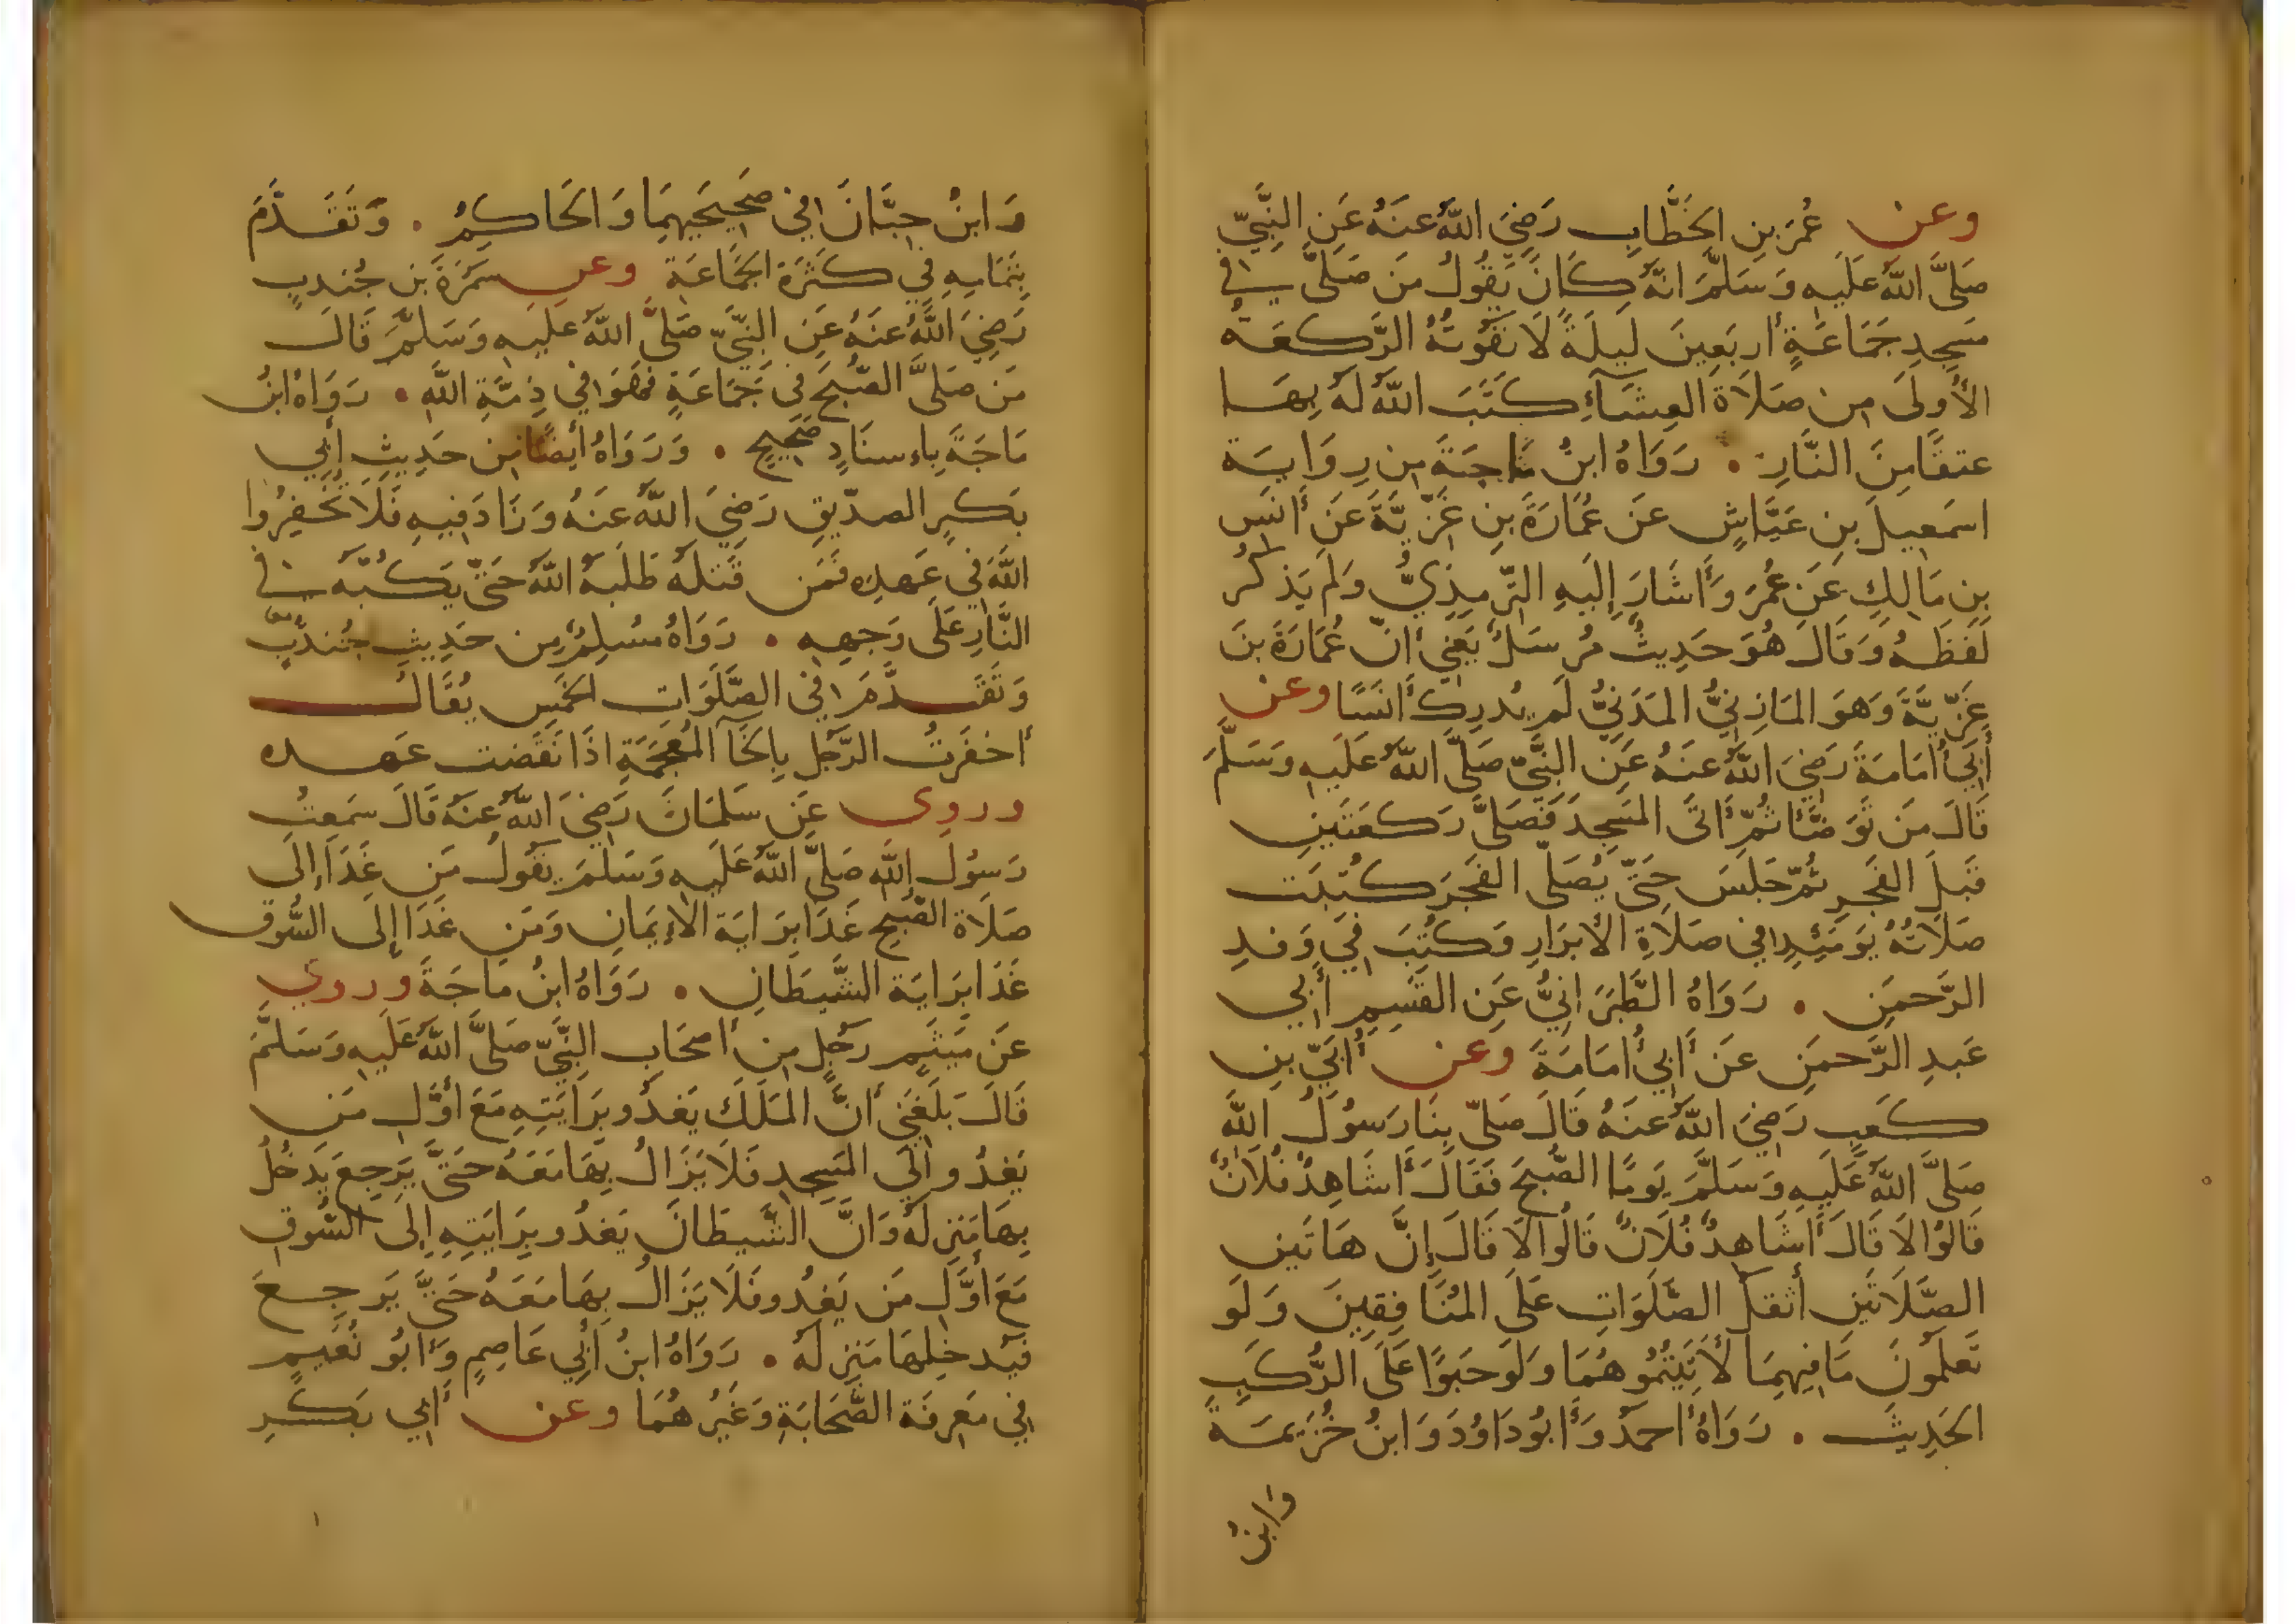 وعن عُمَرَ بنِ الخَطَّابِ رَضِيَ اللَّهُ عَنهُ عَنِ النَّبِيِّ
صَلَّى اللَّهُ عَلَيهِ وَسَلَّمَ انَّهُ كَانَ يَقُولُ مَن صَلَّى فِي
مَسجِدِ جَمَاعَةٍ أربَعِينَ لَيلَةً لَا تَفُوتُهُ الرَّكعَةُ
الأُولَى مِن صَلَاةِ العِشَآءِ كَتَبَ اللَّهُ لَهُ بِهَا
عتقًا مِنَ النَّارِ . رَوَاهُ ابنُ مَاجَةَ مِن رِوَايَةِ
اسمَعِيلَ بنِ عَيَّاشٍ عَن عُمَارَةَ بنِ غَزِيَّةَ عَن أَنَسِ
بنِ مَالِكٍ عَن عُمَرَ وَأَشَارَ إِلَيهِ التِّرمِذِيُّ وَلَم يَذكُر
لَفظَهُ وَقَالَ هُوَ حَدِيثٌ مُرسَلٌ يَعنِي أنَّ عُمَارَةَ بنَ
غَزِيَّةَ وَهوَ المَازِنِيُّ المَدَنِيُّ لَم يُدرِك أَنَسًا وعن
أَبِي أُمَامَةَ رَضِيَ اللَّهُ عَنهُ عَنِ النَّبِيِّ صَلَّى اللَّهُ عَلَيهِ وَسَلَّمَ
قَالَ مَن تَوَضَّأ ثُمَّ أَتَى المَسجِدَ فَصَلَّى رَكعَتَينِ
قَبلَ الفَجرِ ثُمَّ جَلَسَ حَتَّى يُصَلِّى الفَجرَ كُتِبَت
صَلَاتُهُ يَومَئِذٍ فِي صَلَاةِ الأَبرَارِ وَكُتِبَ فِي وَفدِ
الرَّحمَنِ . رَوَاهُ الطَّبَرَانِيُّ عَنِ القَسِمِ أَبِي
عَبدِ الرَّحمَنِ عَن أَبِي أُمَامَةَ وعن أُبَيِّ بنِ
كَعبٍ رَضِيَ اللَّهُ عَنهُ قَالَ صَلَّى بِنَا رَسُولُ اللَّهِ
صَلَّى اللَّهُ عَلَيهِ وَسَلَّمَ يَومًا الصُّبحَ فَقَالَ أَشَاهِدٌ فُلَانٌ
قَالُوا لَا قَالَ أَشَاهِدٌ فُلَانٌ قَالُوا لَا قَالَ إِنَّ هَاتَينِ
الصَّلَاتَينِ أثقَلُ الصَّلَوَاتِ عَلَى المُنَافِقِينَ وَلَو
تَعلَمُونَ مَا فِيهِمَا لأَتَيتُمُوهُمَا وَلَو حَبوًا عَلَى الرُّكَبِ
الحَدِيثَ . رَوَاهُ أحمَدُ وَأَبُو دَاوُدَ وَابنُ خُزَيمَةَ
وَابنُ
وَابنُ حِبَّانَ فِي صَحِيحَيهِمَا وَالحَاكِمُ . وَتَقَدَّمَ
بِتَمَامِهِ فِي كَثرَةِ الجَمَاعَةِ وعن سَمُرَةَ بنِ جُندبٍ
رَضِيَ اللَّهُ عَنهُ عَنِ النَّبِيِّ صَلَّى اللَّهُ عَلَيهِ وَسَلَّمَ قَالَ
مَن صَلَّى الصُّبحَ فِي جَمَاعَةٍ فَهُوَ فِي ذِمَّةِ اللَّهِ . رَوَاهُ ابنُ
مَاجَةَ بِاءسنَادٍ صَحِيحٍ . وَرَوَاهُ أَيضًا مِن حَدِيثِ أَبِي
بَكرٍ الصدِّيقِ رَضِيَ اللَّهُ عَنهُ وَزَادَ فِيهِ فَلَا تُخفِرُوا
اللَّهَ فِي عَهدِهِ فَمَن قَتَلَهُ طَلَبَهُ اللَّهُ حَتَّى يَكُبَّهُ فِي
النَّارِ عَلَى وَجهِهِ . رَوَاهُ مُسلِمٌ مِن حَدِيثِ جُندبٍ
وَتَقَدَّمَ فِي الصَّلَوَاتِ الخَمسِ يُقَالُ
أخفَرتُ الرَّجُلَ بِالخَآ المُعجَمَةِ اذَا نَقَضت عَهده
وروى عَن سَلمَانَ رَضِيَ اللَّهُ عَنهُ قَالَ سَمِعتُ
رَسُولَ اللَّهِ صَلَّى اللَّهُ عَلَيهِ وَسَلَّمَ يَقُولُ مَن غَدَا إِلَى
صَلَاةِ الصُّبحِ غَدَا بِرَايَةِ الاءِيمَانِ وَمَن غَدَا إِلَى السُّوقِ
غَدَا بِرَايَةِ الشَّيطَانِ . رَوَاهُ ابنُ مَاجَةَ وروي
عَن مَيثَمٍ رَجُلٍ مِن أَصحَابِ النَّبِيِّ صَلَّى اللَّهُ عَلَيهِ وَسَلَّمَ
قَالَ بَلَغَنِي أنَّ المَلَكَ يَغدُو بِرَايَتِهِ مَعَ أوَّلِ مَن
يَغدُو إلَى المَسجِدِ فَلَا يَزَالُ بِهَا مَعَهُ حَتَّى يَرجِعَ يَدخُلُ
بِهَا مَنزِلَهُ وَانَّ الشَّيطَانَ يَغدُو بِرَايَتِهِ إِلَى السُّوقِ
مَعَ أوَّلِ مَن يَغدُو فَلَا يَزَالُ بِهَا مَعَهُ حَتَّى يَرجِعَ
فَيدخِلهَا مَنزِلَهُ . رَوَاهُ ابنُ أَبِي عَاصِمٍ وَأَبُو نُعَيمٍ
فِي مَعرِفَةِ الصَّحَابَةِ وَغَيرُهُمَا وعن أَبِي بَكرِ